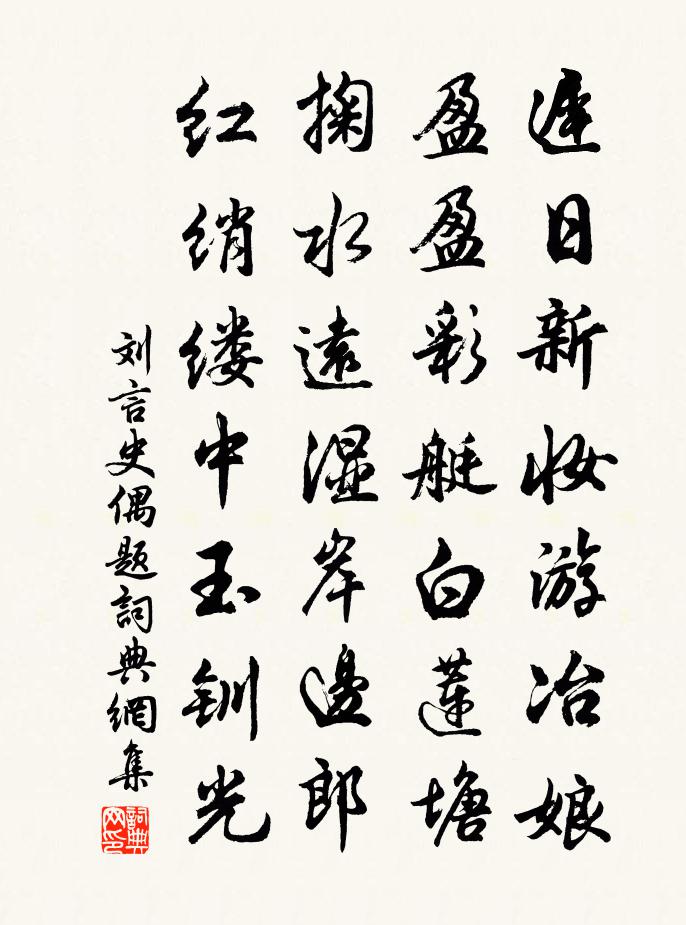 遲日新妆游冶娘
盈盈彩艇白蓮塘
掬水遠湿岸邊郎
红绡缕中玉钏光
刘言史偶題詞典網集
詞典网印